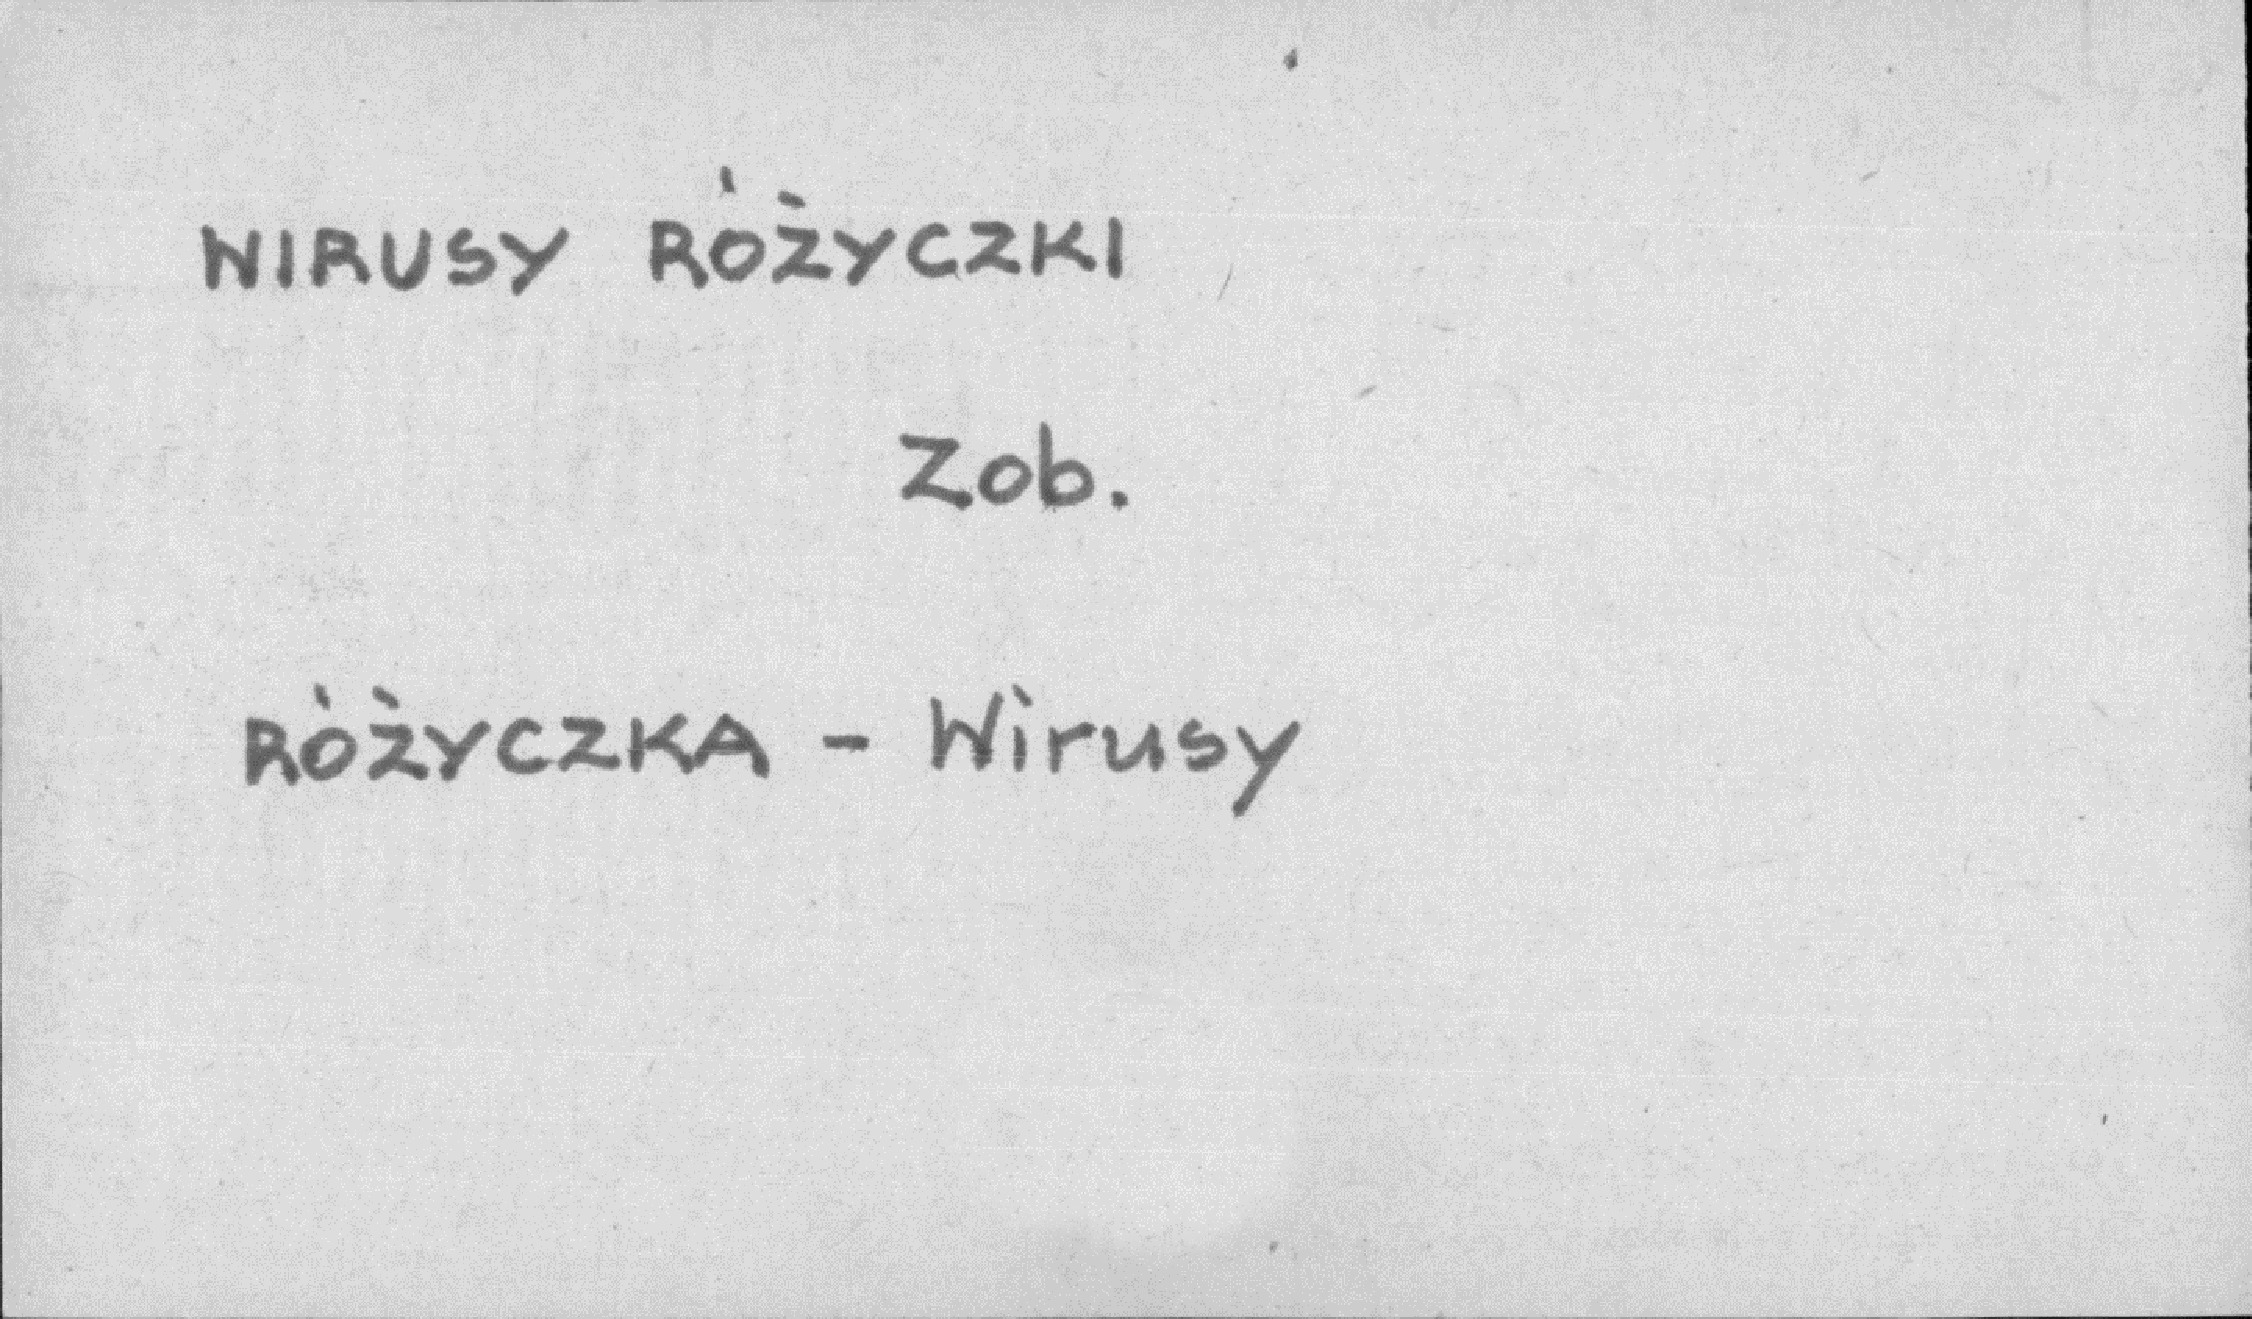 WIRUSY RÓŻYCZKI
Zob.
RÓŻYCZKA - Wirusy